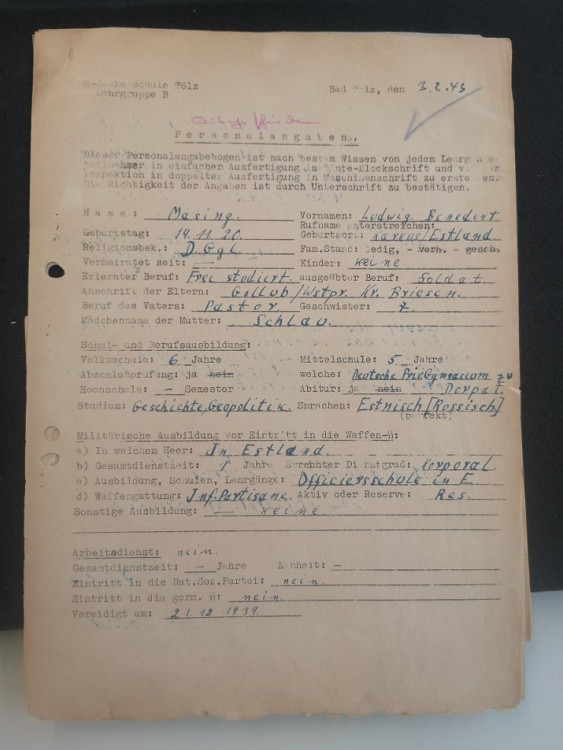 schule Tölz
Lehrgruppe B
Bad Tölz, den 3.2.43
Personalangaben.
Dieser Personalangabebogen ist nach bestem Wissen von jedem Lehrg
teilnehmer in einfacher Ausfertigung in Blockschrift und
Inspektion in doppelter Ausfertigung in Maschinenschrift zu
Die Richtigkeit der Angaben ist durch Unterschrift zu bestätigen.
Name: Masing. Vornamen: Ludwig Benedikt
Rufname unterstreichen:
Geburtstag: 19.11.20. Geburtsort: /Estland.
Religionsbek.: D.Ggl. Fam.Stand: ledig, - verh. - gesch.
Verheiratet seit: — Kinder: keine
Erlernter Beruf: Frei studiert. ausgeübter Beruf: Soldat.
Anschrift der Eltern: Gollub/Wstpr. Kr. Briesen.
Beruf des Vaters: Pastor. Geschwister:
Mädchenname der Mutter: Schlau.
Schul- und Berufsausbildung:
Volksschule: 6 Jahre Mittelschule: 5 Jahre
Abschlußprüfung: ja nein welche: Deutsche Priv. Gymnasium zu
Hochschule: — Semester Abitur: ja nein Dorpat.
Studium: Geschichte, Geopolitik. Sprachen: Estnisch [Russisch]
(perfekt)
Militärische Ausbildung vor Eintritt in die Waffen-SS:
a) In welchem Heer: In Estland.
b) Gesamtdienstzeit: 1 Jahre Erreichter Dienstgrad: Korporal
c) Ausbildung, Schulen, Lehrgänge: Officiersschule in E.
d) Waffengattung: Inf. Partisane. Aktiv oder Reserve: Res.
Sonstige Ausbildung: — keine.
Arbeitsdienst: nein.
Gesamtdienstzeit: — Jahre Einheit: —
Eintritt in die Nat.Soz.Partei: nein.
Eintritt in die germ. SS: nein.
Vereidigt am: 21.12.1939.